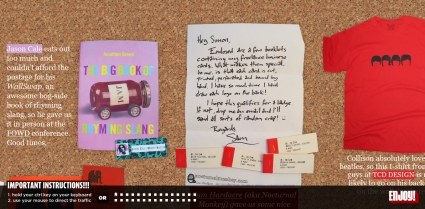 Jason Cale eats out
too much and
couldn't afford the
postage for his
WallSwap, an
awesome bog-side
book of rhyming
slang, so he gave us
it in person at the
FOWD conference.
Good times.
THE BIG BOOK OF
JAM
RHYMING SLANG
Hey Simon,
Enclosed are a few booklets
containing my freelance business
cards. What makes them special
to me, is that each card is cut,
printed, perforated and bound by
hand. I have so much time I hand
draw each logo on the back!
I hope this qualifies for a badge
If not, drop me an email and I'll
send all sorts of random crap! :-)
Regards,
Collison absolutely love
beatles, so this t-shirt from
guys at TCD DESIGN is
likely to go on his back
IMPORTANT INSTRUCTIONS!!!
1. hold your ctrl key on your keyboard
2. use your mouse to direct the traffic
OR
ENJOY!